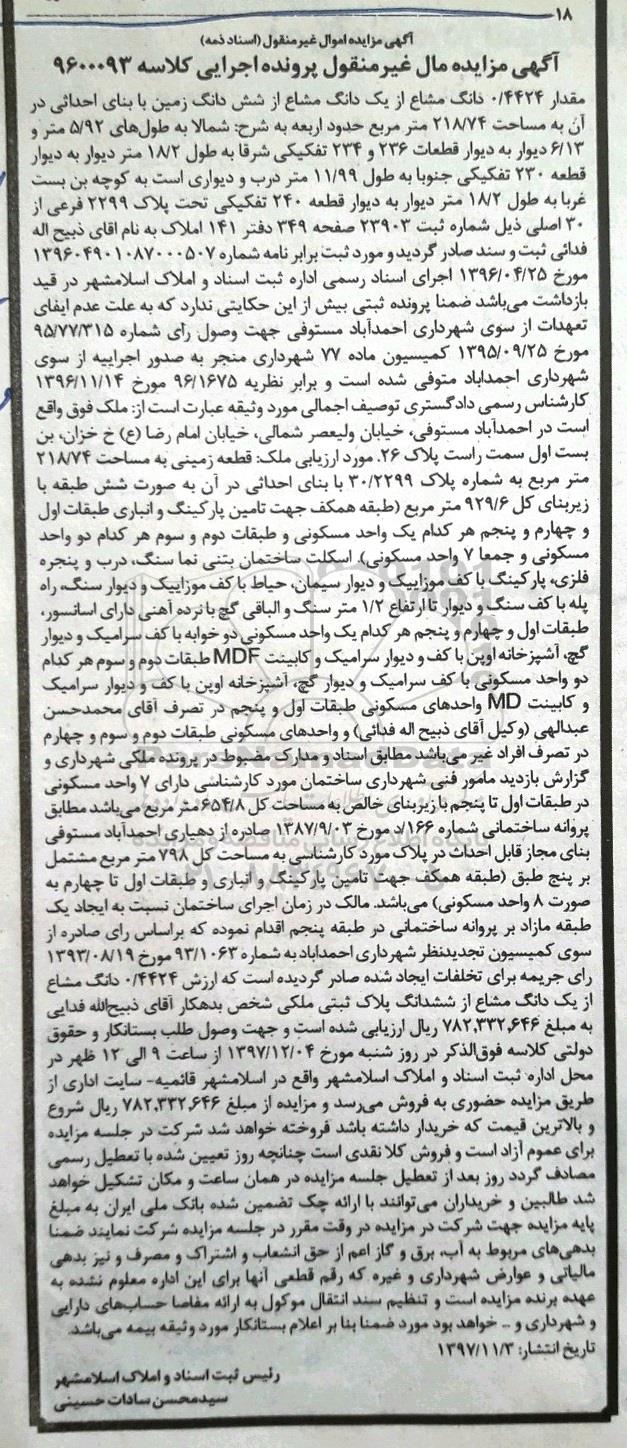 ۱۸
آگهی مزایده اموال غیرمنقول (اسناد ذمه)
آگهی مزایده مال غیرمنقول پرونده اجرایی کلاسه ۹۶۰۰۰۹۳
مقدار ۰/۴۴۲۴ دانگ مشاع از یک دانگ مشاع از شش دانگ زمین با بنای احداثی در
آن به مساحت ۲۱۸/۷۴ متر مربع حدود اربعه به شرح: شمالا به طول‌های ۵/۹۲ متر و
۶/۱۳ دیوار به دیوار قطعات ۲۳۶ و ۲۳۴ تفکیکی شرقا به طول ۱۸/۲ متر دیوار به دیوار
قطعه ۲۳۰ تفکیکی جنوبا به طول ۱۱/۹۹ متر درب و دیواری است به کوچه بن بست
غربا به طول ۱۸/۲ متر دیوار به دیوار قطعه ۲۴۰ تفکیکی تحت پلاک ۲۲۹۹ فرعی از
۳۰ اصلی ذیل شماره ثبت ۲۳۹۰۳ صفحه ۳۴۹ دفتر ۱۴۱ املاک به نام اقای ذبیح اله
فدائی ثبت و سند صادر گردید و مورد ثبت برابر نامه شماره ۱۳۹۶۰۴۹۰۱۰۸۷۰۰۰۵۰۷
مورخ ۱۳۹۶/۰۴/۲۵ اجرای اسناد رسمی اداره ثبت اسناد و املاک اسلامشهر در قید
بازداشت می‌باشد ضمنا پرونده ثبتی بیش از این حکایتی ندارد که به علت عدم ایفای
تعهدات از سوی شهرداری احمدآباد مستوفی جهت وصول رای شماره ۹۵/۷۷/۳۱۵
مورخ ۱۳۹۵/۰۹/۲۵ کمیسیون ماده ۷۷ شهرداری منجر به صدور اجراییه از سوی
شهرداری احمداباد متوفی شده است و برابر نظریه ۹۶/۱۶۷۵ مورخ ۱۳۹۶/۱۱/۱۴
کارشناس رسمی دادگستری توصیف اجمالی مورد وثیقه عبارت است از: ملک فوق واقع
است در احمدآباد مستوفی، خیابان ولیعصر شمالی، خیابان امام رضا (ع) خ خزان، بن
بست اول سمت راست پلاک ۲۶. مورد ارزیابی ملک: قطعه زمینی به مساحت ۲۱۸/۷۴
متر مربع به شماره پلاک ۳۰/۲۲۹۹ با بنای احداثی در آن به صورت شش طبقه با
زیربنای کل ۹۲۹/۶ متر مربع (طبقه همکف جهت تامین پارکینگ و انباری طبقات اول
و چهارم و پنجم هر کدام یک واحد مسکونی و طبقات دوم و سوم هر کدام دو واحد
مسکونی و جمعا ۷ واحد مسکونی). اسکلت ساختمان بتنی نما سنگ، درب و پنجره
فلزی، پارکینگ با کف موزاییک و دیوار سیمان، حیاط با کف موزاییک و دیوار سنگ، راه
پله با کف سنگ و دیوار تا ارتفاع ۱/۲ متر سنگ و الباقی گچ با نرده آهنی دارای اسانسور،
طبقات اول و چهارم و پنجم هر کدام یک واحد مسکونی دو خوابه با کف سرامیک و دیوار
گچ، آشپزخانه اوپن با کف و دیوار سرامیک و کابینت MDF طبقات دوم و سوم هر کدام
دو واحد مسکونی با کف سرامیک و دیوار گچ، آشپزخانه اوپن با کف و دیوار سرامیک
و کابینت MD واحدهای مسکونی طبقات اول و پنجم در تصرف آقای محمدحسن
عبدالهی (وکیل آقای ذبیح اله فدائی) و واحدهای مسکونی طبقات دوم و سوم و چهارم
در تصرف افراد غیر می‌باشد مطابق اسناد و مدارک مضبوط در پرونده ملکی شهرداری و
گزارش بازدید مامور فنی شهرداری ساختمان مورد کارشناسی دارای ۷ واحد مسکونی
در طبقات اول تا پنجم با زیربنای خالص به مساحت کل ۶۵۴/۸ متر مربع می‌باشد مطابق
پروانه ساختمانی شماره ۱۶۶/د مورخ ۱۳۸۷/۹/۰۳ صادره از دهیاری احمدآباد مستوفی
بنای مجاز قابل احداث در پلاک مورد کارشناسی به مساحت کل ۷۹۸ متر مربع مشتمل
بر پنج طبق (طبقه همکف جهت تامین پارکینگ و انباری و طبقات اول تا چهارم به
صورت ۸ واحد مسکونی) می‌باشد. مالک در زمان اجرای ساختمان نسبت به ایجاد یک
طبقه مازاد بر پروانه ساختمانی در طبقه پنجم اقدام نموده که براساس رای صادره از
سوی کمیسیون تجدیدنظر شهرداری احمداباد به شماره ۹۳/۱۰۶۳ مورخ ۱۳۹۳/۰۸/۱۹
رای جریمه برای تخلفات ایجاد شده صادر گردیده است که ارزش ۰/۴۴۲۴ دانگ مشاع
از یک دانگ مشاع از ششدانگ پلاک ثبتی ملکی شخص بدهکار آقای ذبیح‌الله فدایی
به مبلغ ۷۸۲,۳۳۲,۶۴۶ ریال ارزیابی شده است و جهت وصول طلب بستانکار و حقوق
دولتی کلاسه فوق‌الذکر در روز شنبه مورخ ۱۳۹۷/۱۲/۰۴ از ساعت ۹ الی ۱۲ ظهر در
محل اداره ثبت اسناد و املاک اسلامشهر واقع در اسلامشهر قائمیه- سایت اداری از
طریق مزایده حضوری به فروش می‌رسد و مزایده از مبلغ ۷۸۲,۳۳۲,۶۴۶ ریال شروع
و بالاترین قیمت که خریدار داشته باشد فروخته خواهد شد شرکت در جلسه مزایده
برای عموم آزاد است و فروش کلا نقدی است چنانچه روز تعیین شده با تعطیل رسمی
مصادف گردد روز بعد از تعطیل جلسه مزایده در همان ساعت و مکان تشکیل خواهد
شد طالبین و خریداران می‌توانند با ارائه چک تضمین شده بانک ملی ایران به مبلغ
پایه مزایده جهت شرکت در مزایده در وقت مقرر در جلسه مزایده شرکت نمایند ضمنا
بدهی‌های مربوط به آب، برق و گاز اعم از حق انشعاب و اشتراک و مصرف و نیز بدهی
مالیاتی و عوارض شهرداری و غیره که رقم قطعی آنها برای این اداره معلوم نشده به
عهده برنده مزایده است و تنظیم سند انتقال موکول به ارائه مفاصا حساب‌های دارایی
و شهرداری و ... خواهد بود مورد ضمنا بنا بر اعلام بستانکار مورد وثیقه بیمه می‌باشد.
تاریخ انتشار: ۱۳۹۷/۱۱/۳
رئیس ثبت اسناد و املاک اسلامشهر
سیدمحسن سادات حسینی